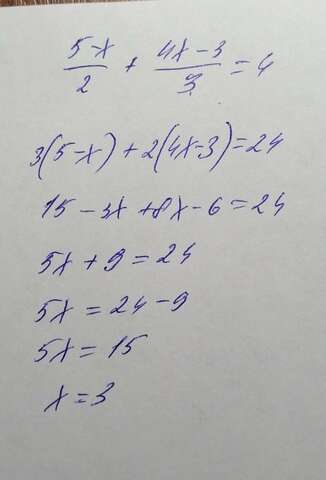 5-x/2 + 4x-3/3 = 4
3(5-x)+2(4x-3)=24
15-3x+8x-6=24
5x+9=24
5x=24-9
5x=15
x=3